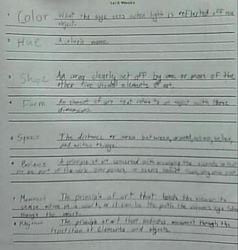 Color What the eye sees when light is reflected off an
object.
Hue A color's name.
Shape An area clearly set off by one or more of the
other five visual elements of art.
Form An element of art that refers to an object with three
dimensions.
Space The distance or area between, around, above, below,
and within things.
Balance A principle of art concerned with arranging the elements so that
no one part of the work
Movement The principle of art that leads the viewer to
the viewer's eye
through the work.
Rhythm The principle of art that indicates movement through the
repetition of elements and objects.